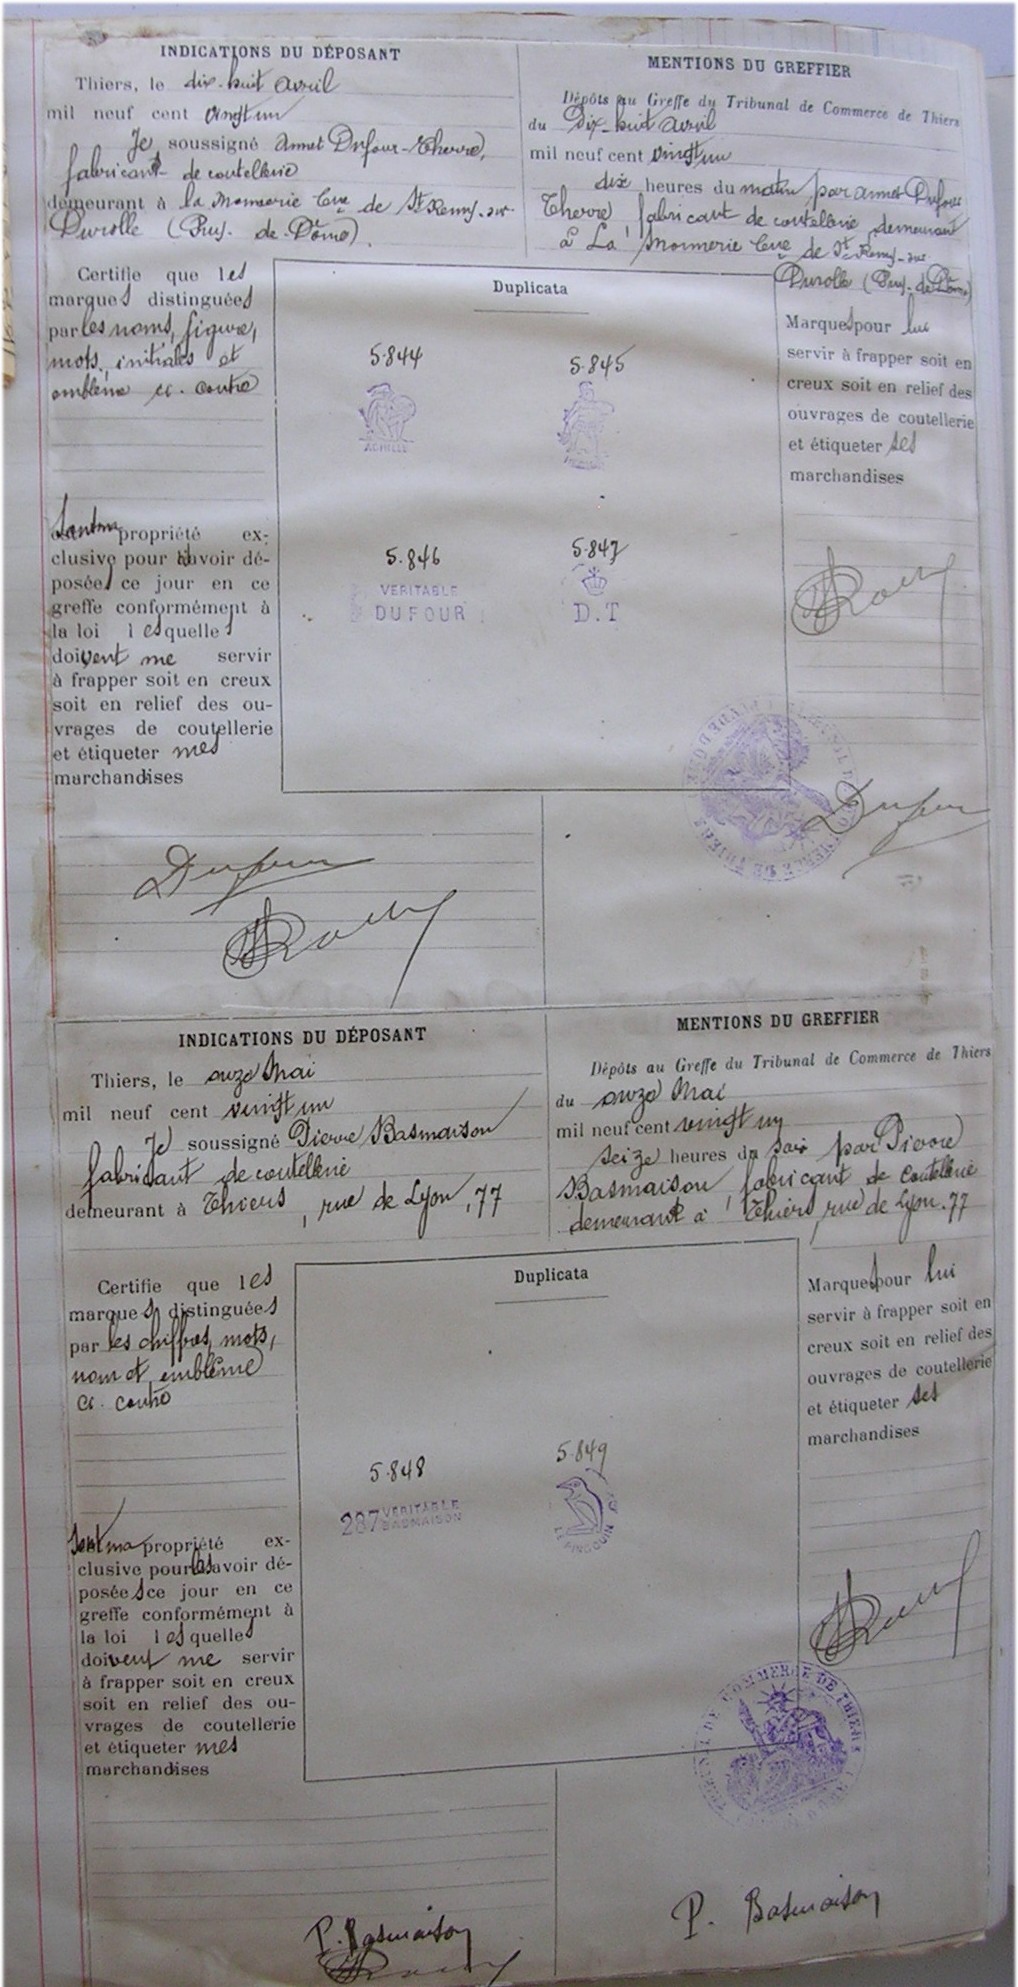 INDICATIONS DU DÉPOSANT
Thiers, le dix-huit avril
mil neuf cent vingt un
Je soussigné Annet Dufour-Therre,
fabricant de coutellerie
demeurant à la Monnerie Cne de St Remy-sur-
Durolle (Puy-de-Dôme).
MENTIONS DU GREFFIER
Dépôts au Greffe du Tribunal de Commerce de Thiers
du Dix-huit avril
mil neuf cent vingt un
dix heures du matin par Annet Dufour
Therre, fabricant de coutellerie demeurant
à La Monnerie Cne de St Remy-sur
Durolle (Puy-de-Dôme)
Certifie que les
marques distinguées
par les noms, figure,
mots, initiales et
emblème ci-contre
Duplicata
5.844
ACHILLE
5.845
5.846
VERITABLE
DUFOUR
5.847
D.T
Marques pour lui
servir à frapper soit en
creux soit en relief des
ouvrages de coutellerie
et étiqueter ses
marchandises
sont ma propriété ex-
clusive pour les avoir dé-
posées ce jour en ce
greffe conformément à
la loi lesquelles
doivent me servir
à frapper soit en creux
soit en relief des ou-
vrages de coutellerie
et étiqueter mes
marchandises
Dufour
Dufour
INDICATIONS DU DÉPOSANT
Thiers, le onze Mai
mil neuf cent vingt un
Je soussigné Pierre Basmaison
fabricant de coutellerie
demeurant à Thiers, rue de Lyon, 77
MENTIONS DU GREFFIER
Dépôts au Greffe du Tribunal de Commerce de Thiers
du onze Mai
mil neuf cent vingt un
seize heures du soir par Pierre
Basmaison, fabricant de coutellerie
demeurant à Thiers, rue de Lyon. 77
Certifie que les
marques distinguées
par les chiffres, mots,
nom et emblème
ci-contre
Duplicata
5.848
287 VERITABLE
BASMAISON
5.849
PINGOUIN
Marques pour lui
servir à frapper soit en
creux soit en relief des
ouvrages de coutellerie
et étiqueter ses
marchandises
sont ma propriété ex-
clusive pour les avoir dé-
posées ce jour en ce
greffe conformément à
la loi lesquelles
doivent me servir
à frapper soit en creux
soit en relief des ou-
vrages de coutellerie
et étiqueter mes
marchandises
TRIBUNAL DE COMMERCE DE THIERS
P. Basmaison
P. Basmaison